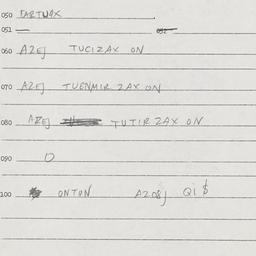 050 FARTWAX
051
060 AZEJ TUCIZAX ON
070 AZEJ TUENMIR ZAX ON
080 AZEJ TUTIR ZAX ON
090 D
100 ONTON AZOBJ QI $